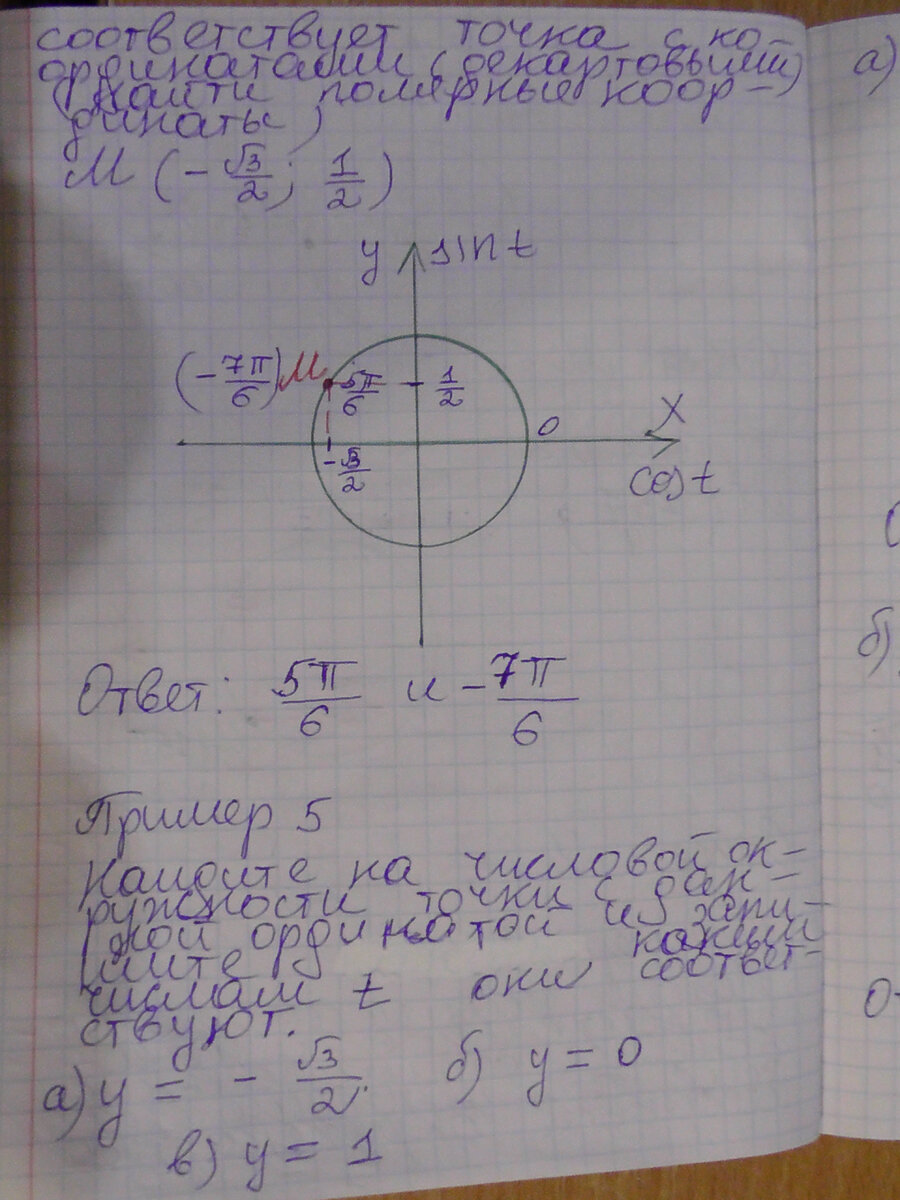 соответствует точка с ко-
ординатами (декартовыми)
(Найти полярные коор-
динаты)
М (-√3/2; 1/2)
y sin t
(-7π/6) М 5π/6 1/2
0 X
-√3/2 cos t
Ответ: 5π/6 и -7π/6
Пример 5
Найдите на числовой ок-
ружности точки с дан-
ной ординатой и запи-
шите каким
числам t они соответ-
ствуют.
а) y = -√3/2. б) y = 0
в) y = 1
а)
(
б)
О